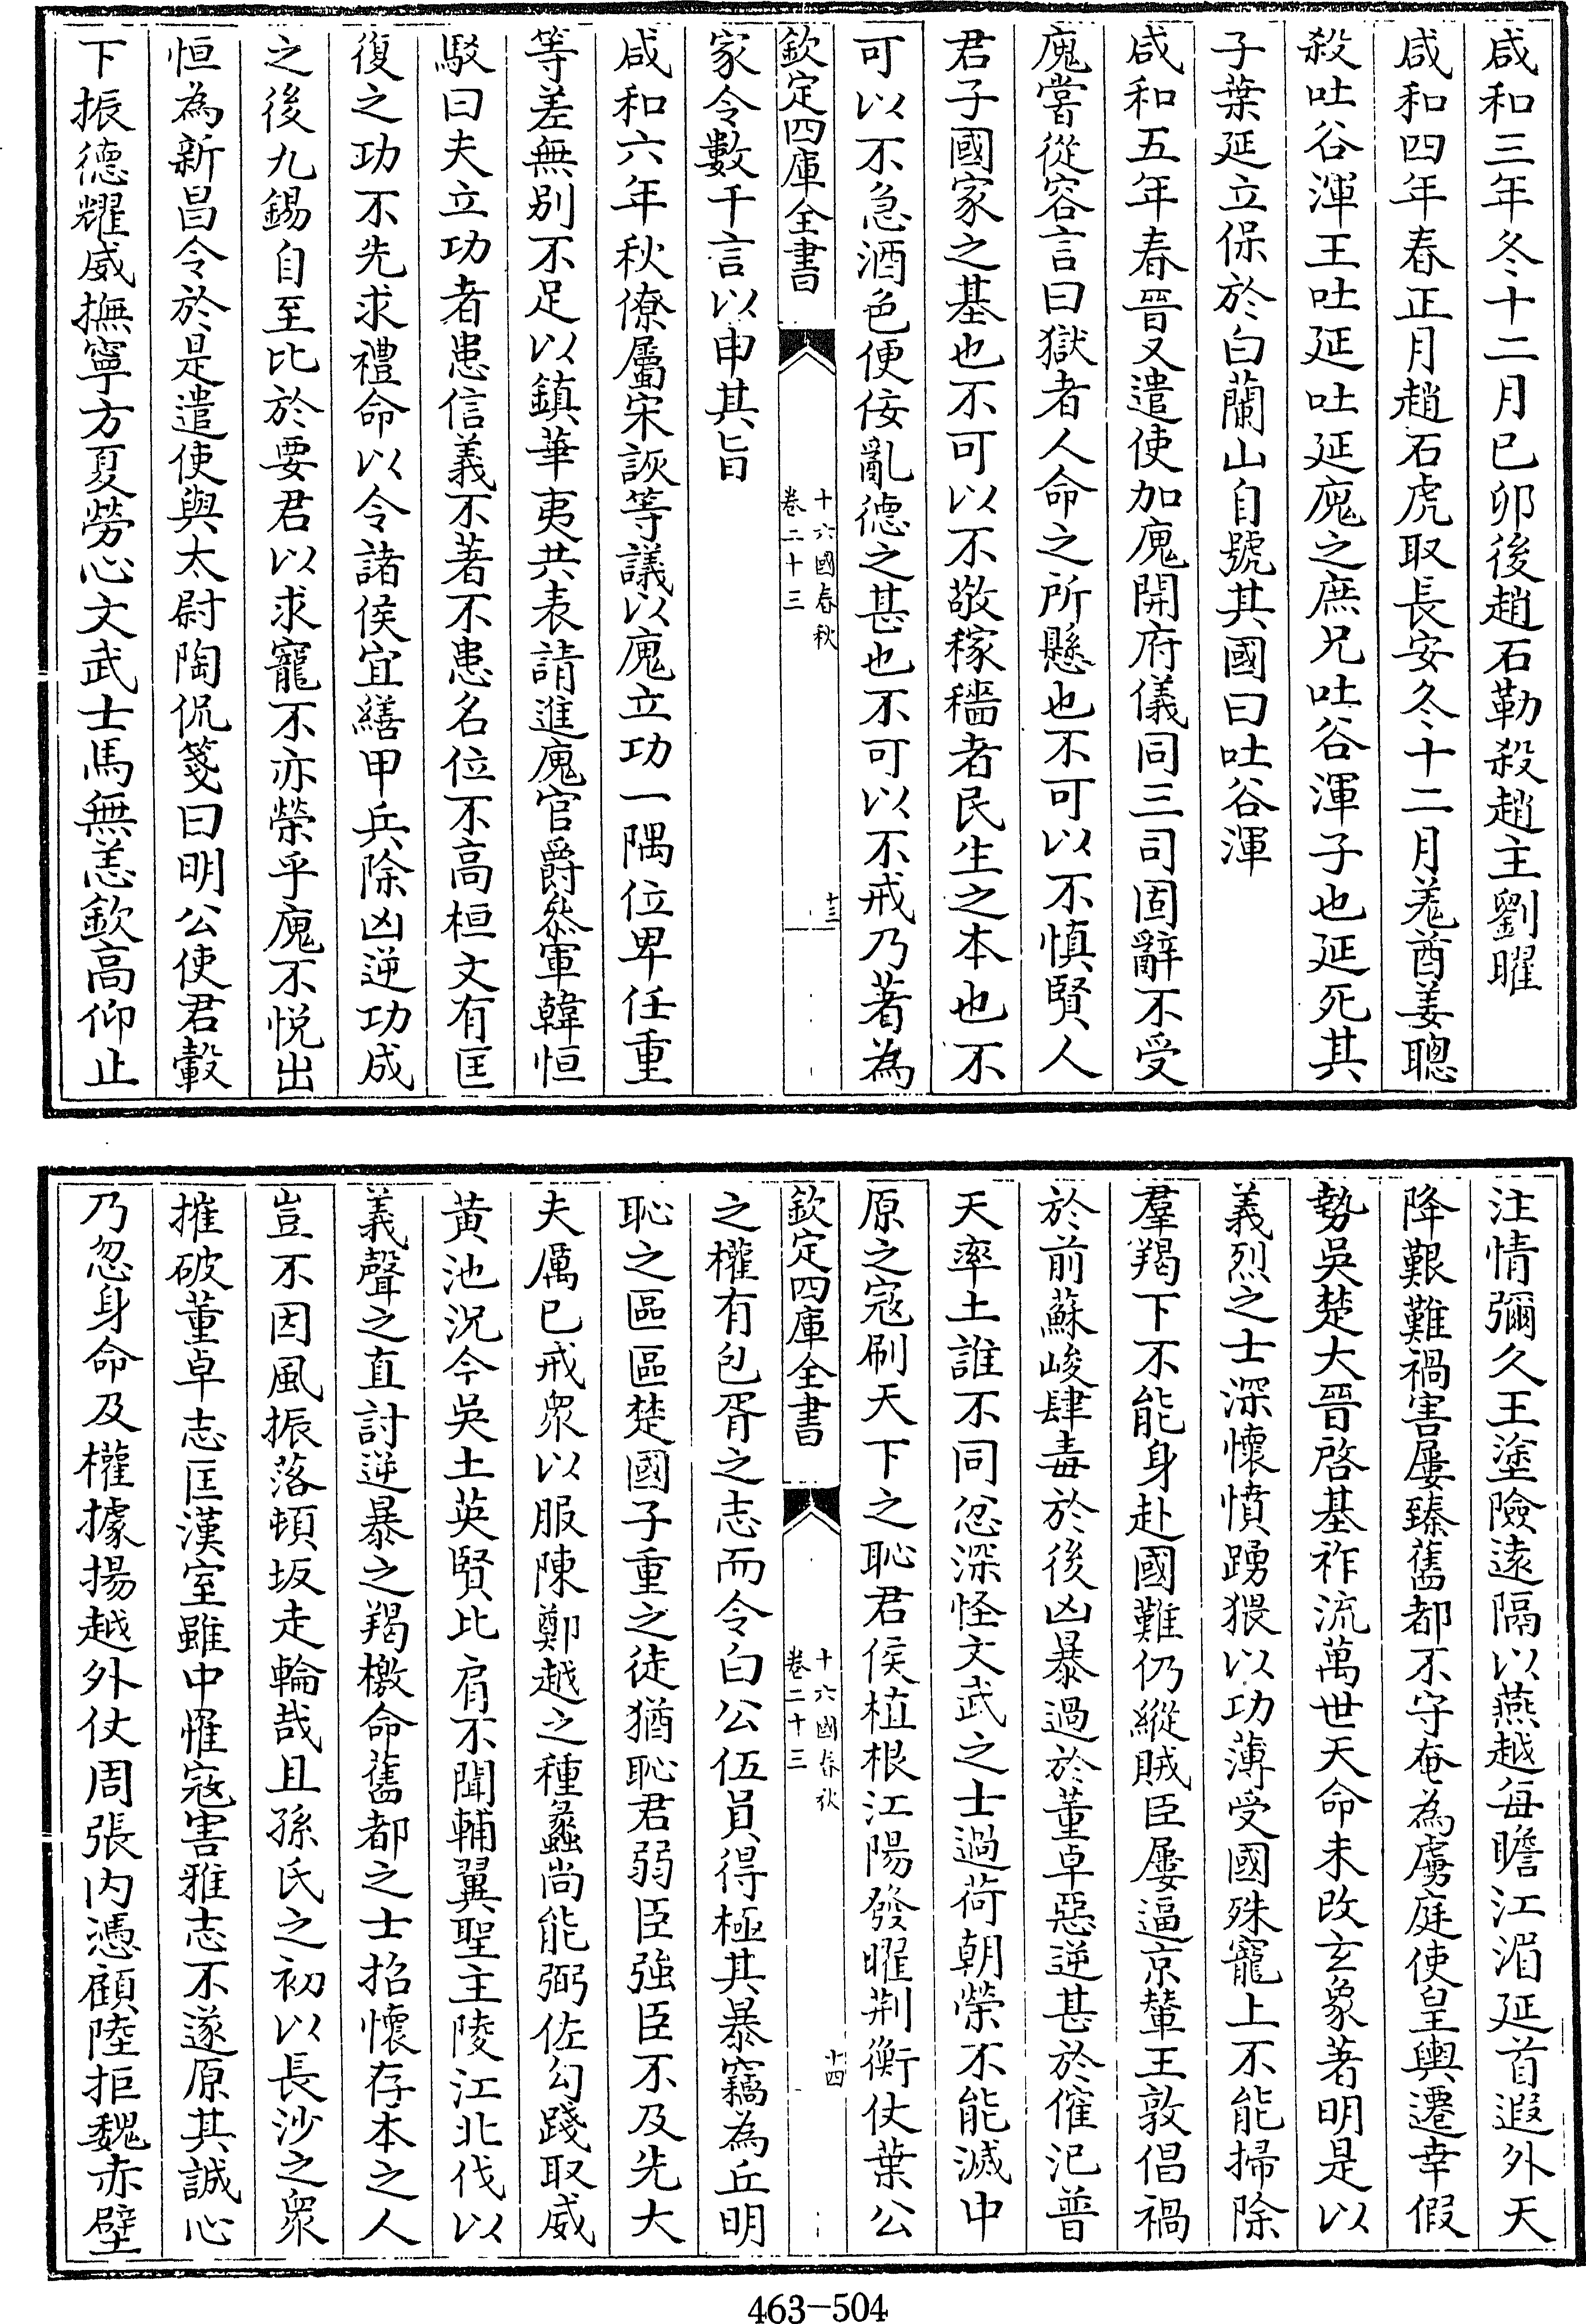 咸和三年冬十二月已卯後趙石勒殺趙主劉曜
咸和四年春正月趙石虎取長安冬十二月羗酋姜聰
殺吐谷渾王吐延吐延廆之庶兄吐谷渾子也延死其
子葉延立保於白蘭山自號其國曰吐谷渾
咸和五年春晉又遣使加廆開府儀同三司固辭不受
廆嘗從容言曰獄者人命之所懸也不可以不慎賢人
君子國家之基也不可以不敬稼穡者民生之本也不
可以不急酒色便佞亂德之甚也不可以不戒乃著為
欽定四庫全書
十六國春秋
卷二十三
十三
家令數千言以申其旨
咸和六年秋僚屬宋詼等議以廆立功一隅位卑任重
等差無别不足以鎮華夷共表請進廆官爵叅軍韓恒
駁曰夫立功者患信義不著不患名位不高桓文有匡
復之功不先求禮命以令諸侯宜繕甲兵除凶逆功成
之後九錫自至比於要君以求寵不亦榮乎廆不悦出
恒為新昌令於是遣使與太尉陶侃箋曰明公使君轂
下振德耀威撫寧方夏勞心文武士馬無恙欽高仰止
注情彌久王塗險遠隔以燕越每瞻江湄延首遐外天
降艱難禍害屢臻舊都不守奄為虜庭使皇輿遷幸假
勢吳楚大晉啓基祚流萬世天命未改玄象著明是以
義烈之士深懷憤踴猥以功薄受國殊寵上不能掃除
羣羯下不能身赴國難仍縱賊臣屢逼京輦王敦倡禍
於前蘇峻肆毒於後凶暴過於董卓惡逆甚於傕汜普
天率土誰不同忿深怪文武之士過荷朝榮不能滅中
原之寇刷天下之恥君侯植根江陽發曜荆衡仗葉公
欽定四庫全書
十六國春秋
卷二十三
十四
之權有包胥之志而令白公伍員得極其暴竊為丘明
恥之區區楚國子重之徒猶恥君弱臣强臣不及先大
夫厲已戒衆以服陳鄭越之種蠡尚能弼佐勾踐取威
黄池況今吳土英賢比肩不聞輔翼聖主陵江北伐以
義聲之直討逆暴之羯檄命舊都之士招懷存本之人
豈不因風振落頓坂走輪哉且孫氏之初以長沙之衆
摧破董卓志匡漢室雖中罹寇害雅志不遂原其誠心
乃忽身命及權據揚越外仗周張内憑顧陸拒魏赤壁
463-504